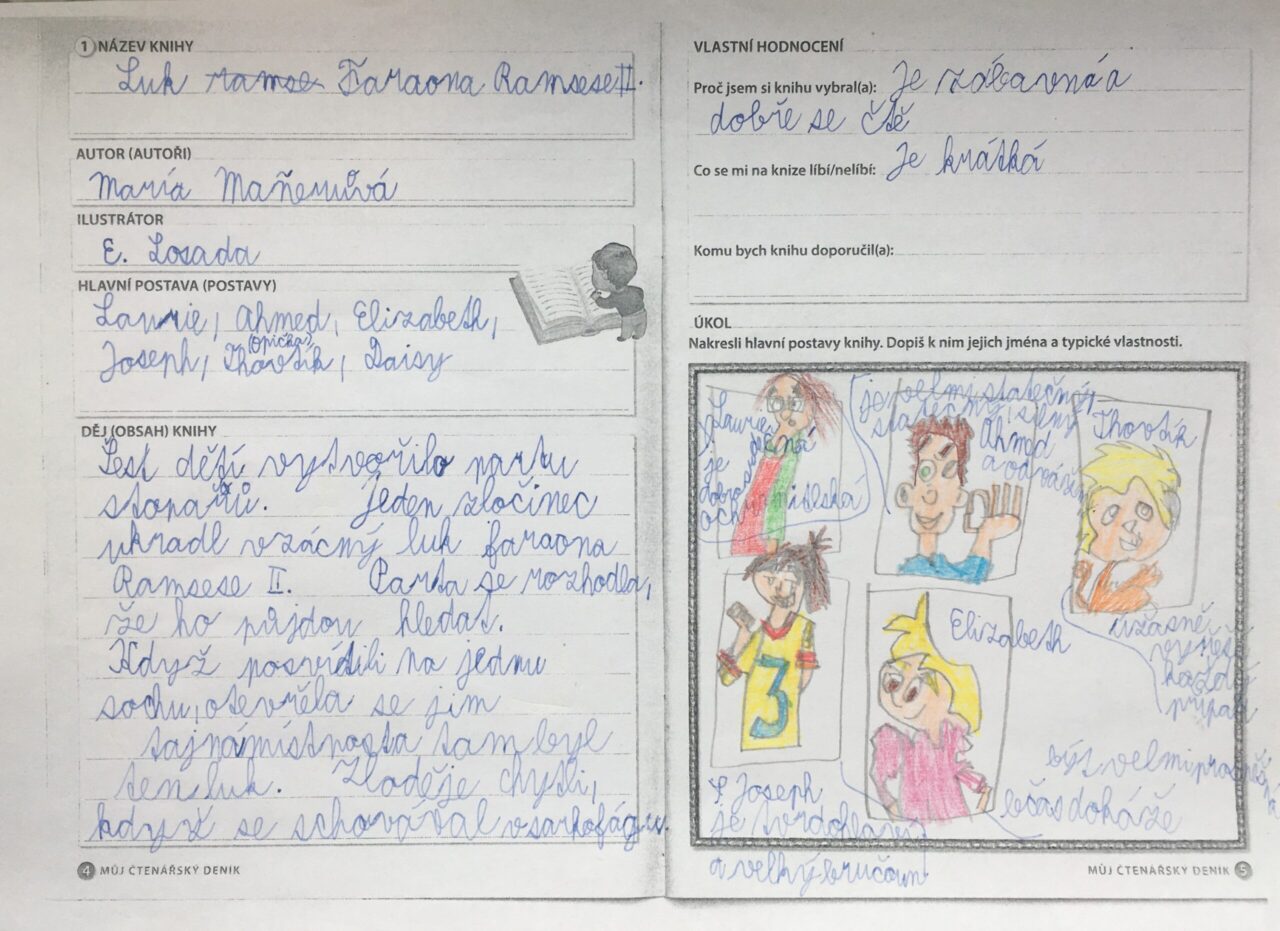 1 NÁZEV KNIHY
Luk ramse Faraona Ramsese II.
AUTOR (AUTOŘI)
María Maňerušvá
ILUSTRÁTOR
E. Losada
HLAVNÍ POSTAVA (POSTAVY)
Laurie, Ahmed, Elizabeth,
(opička)
Joseph, Thovtík, Daisy
DĚJ (OBSAH) KNIHY
Šest dětí vytvořilo partu
stopařů. Jeden zločinec
ukradl vzácný luk faraona
Ramsese II. Parta se rozhodla,
že ho půjdou hledat.
Když posvítili na jednu
sochu, otevřela se jim
tajná místnost a tam byl
ten luk. Zloděje chytli,
když se schovával v sarkofágu.
4 MŮJ ČTENÁŘSKÝ DENÍK
VLASTNÍ HODNOCENÍ
Proč jsem si knihu vybral(a): Je zábavná a
dobře se čtě
Co se mi na knize líbí/nelíbí: Je krátká
Komu bych knihu doporučil(a):
ÚKOL
Nakresli hlavní postavy knihy. Dopiš k nim jejich jména a typické vlastnosti.
Laurie
je
je velmi statečný,
statečný, silný
Ahmed
a odvážný
Thovtík
úžasně
vyřeší
každý
případ
3
Elizabeth
být velmi
občas dokáže
Joseph
je tvrdohlavý
a velký bručoun
MŮJ ČTENÁŘSKÝ DENÍK 5